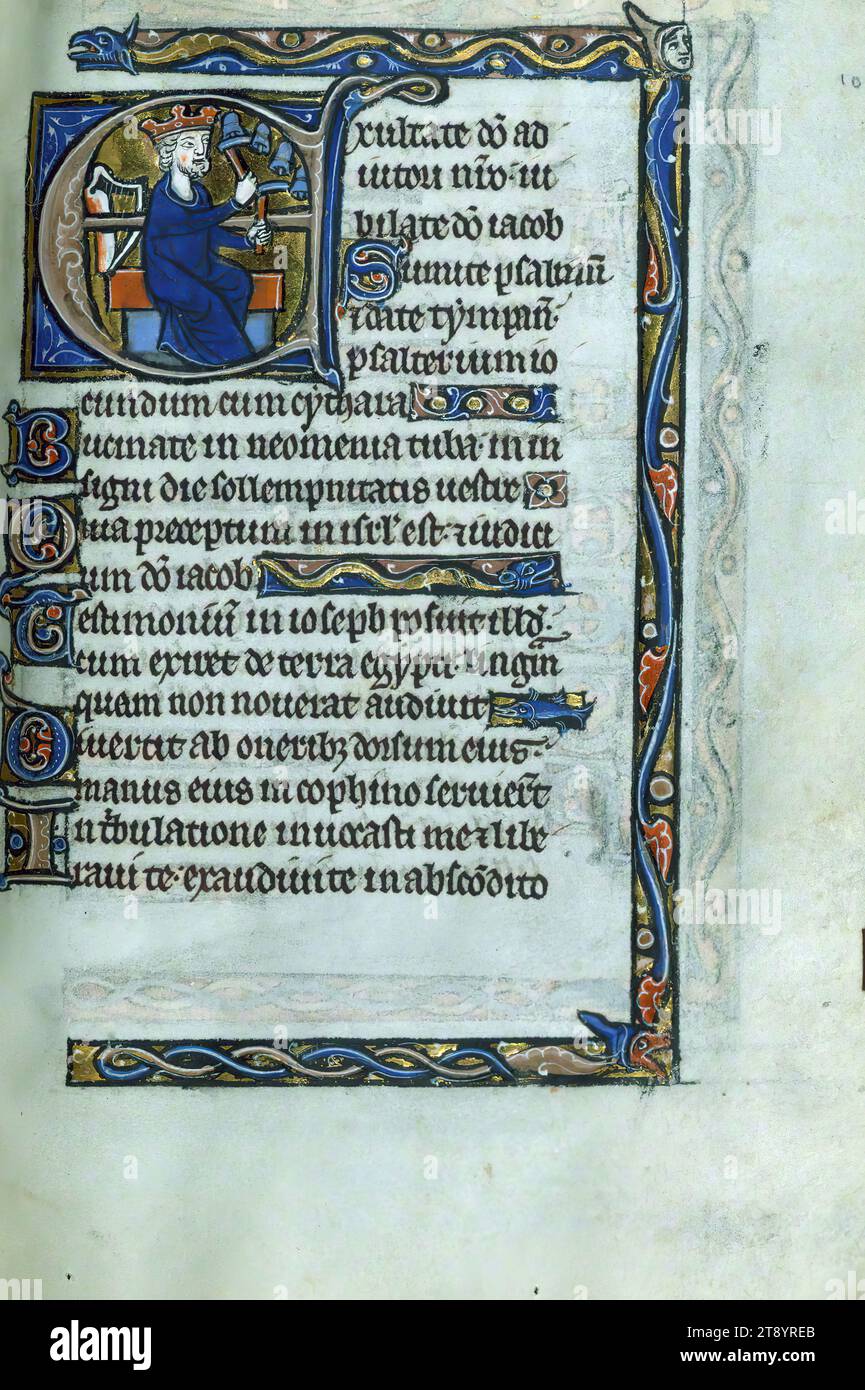 Exultate dō ad
iutori nr̄o · iu
bilate dō iacob
Sumite psalmū
⁊ date tympanū ·
psalterium io
cundum cum cythara
Bucinate in neomenia tuba · in in
signi die sollempnitatis uestre
Quia preceptum in isrl̄ est · ⁊ iudici
um dō iacob
Testimoniū in ioseph posuit illđ ·
cum exiret de terra egypti · linguā
quam non nouerat audiuit
Diuertit ab oneribꝫ dorsum eius ·
manus eius in cophino seruierūt
In tⁱbulatione inuocasti me ⁊ libe
raui te · exaudiui te in abscōdito
10
alamy
alamy
alamy
Image ID: 2T8YREB
www.alamy.com